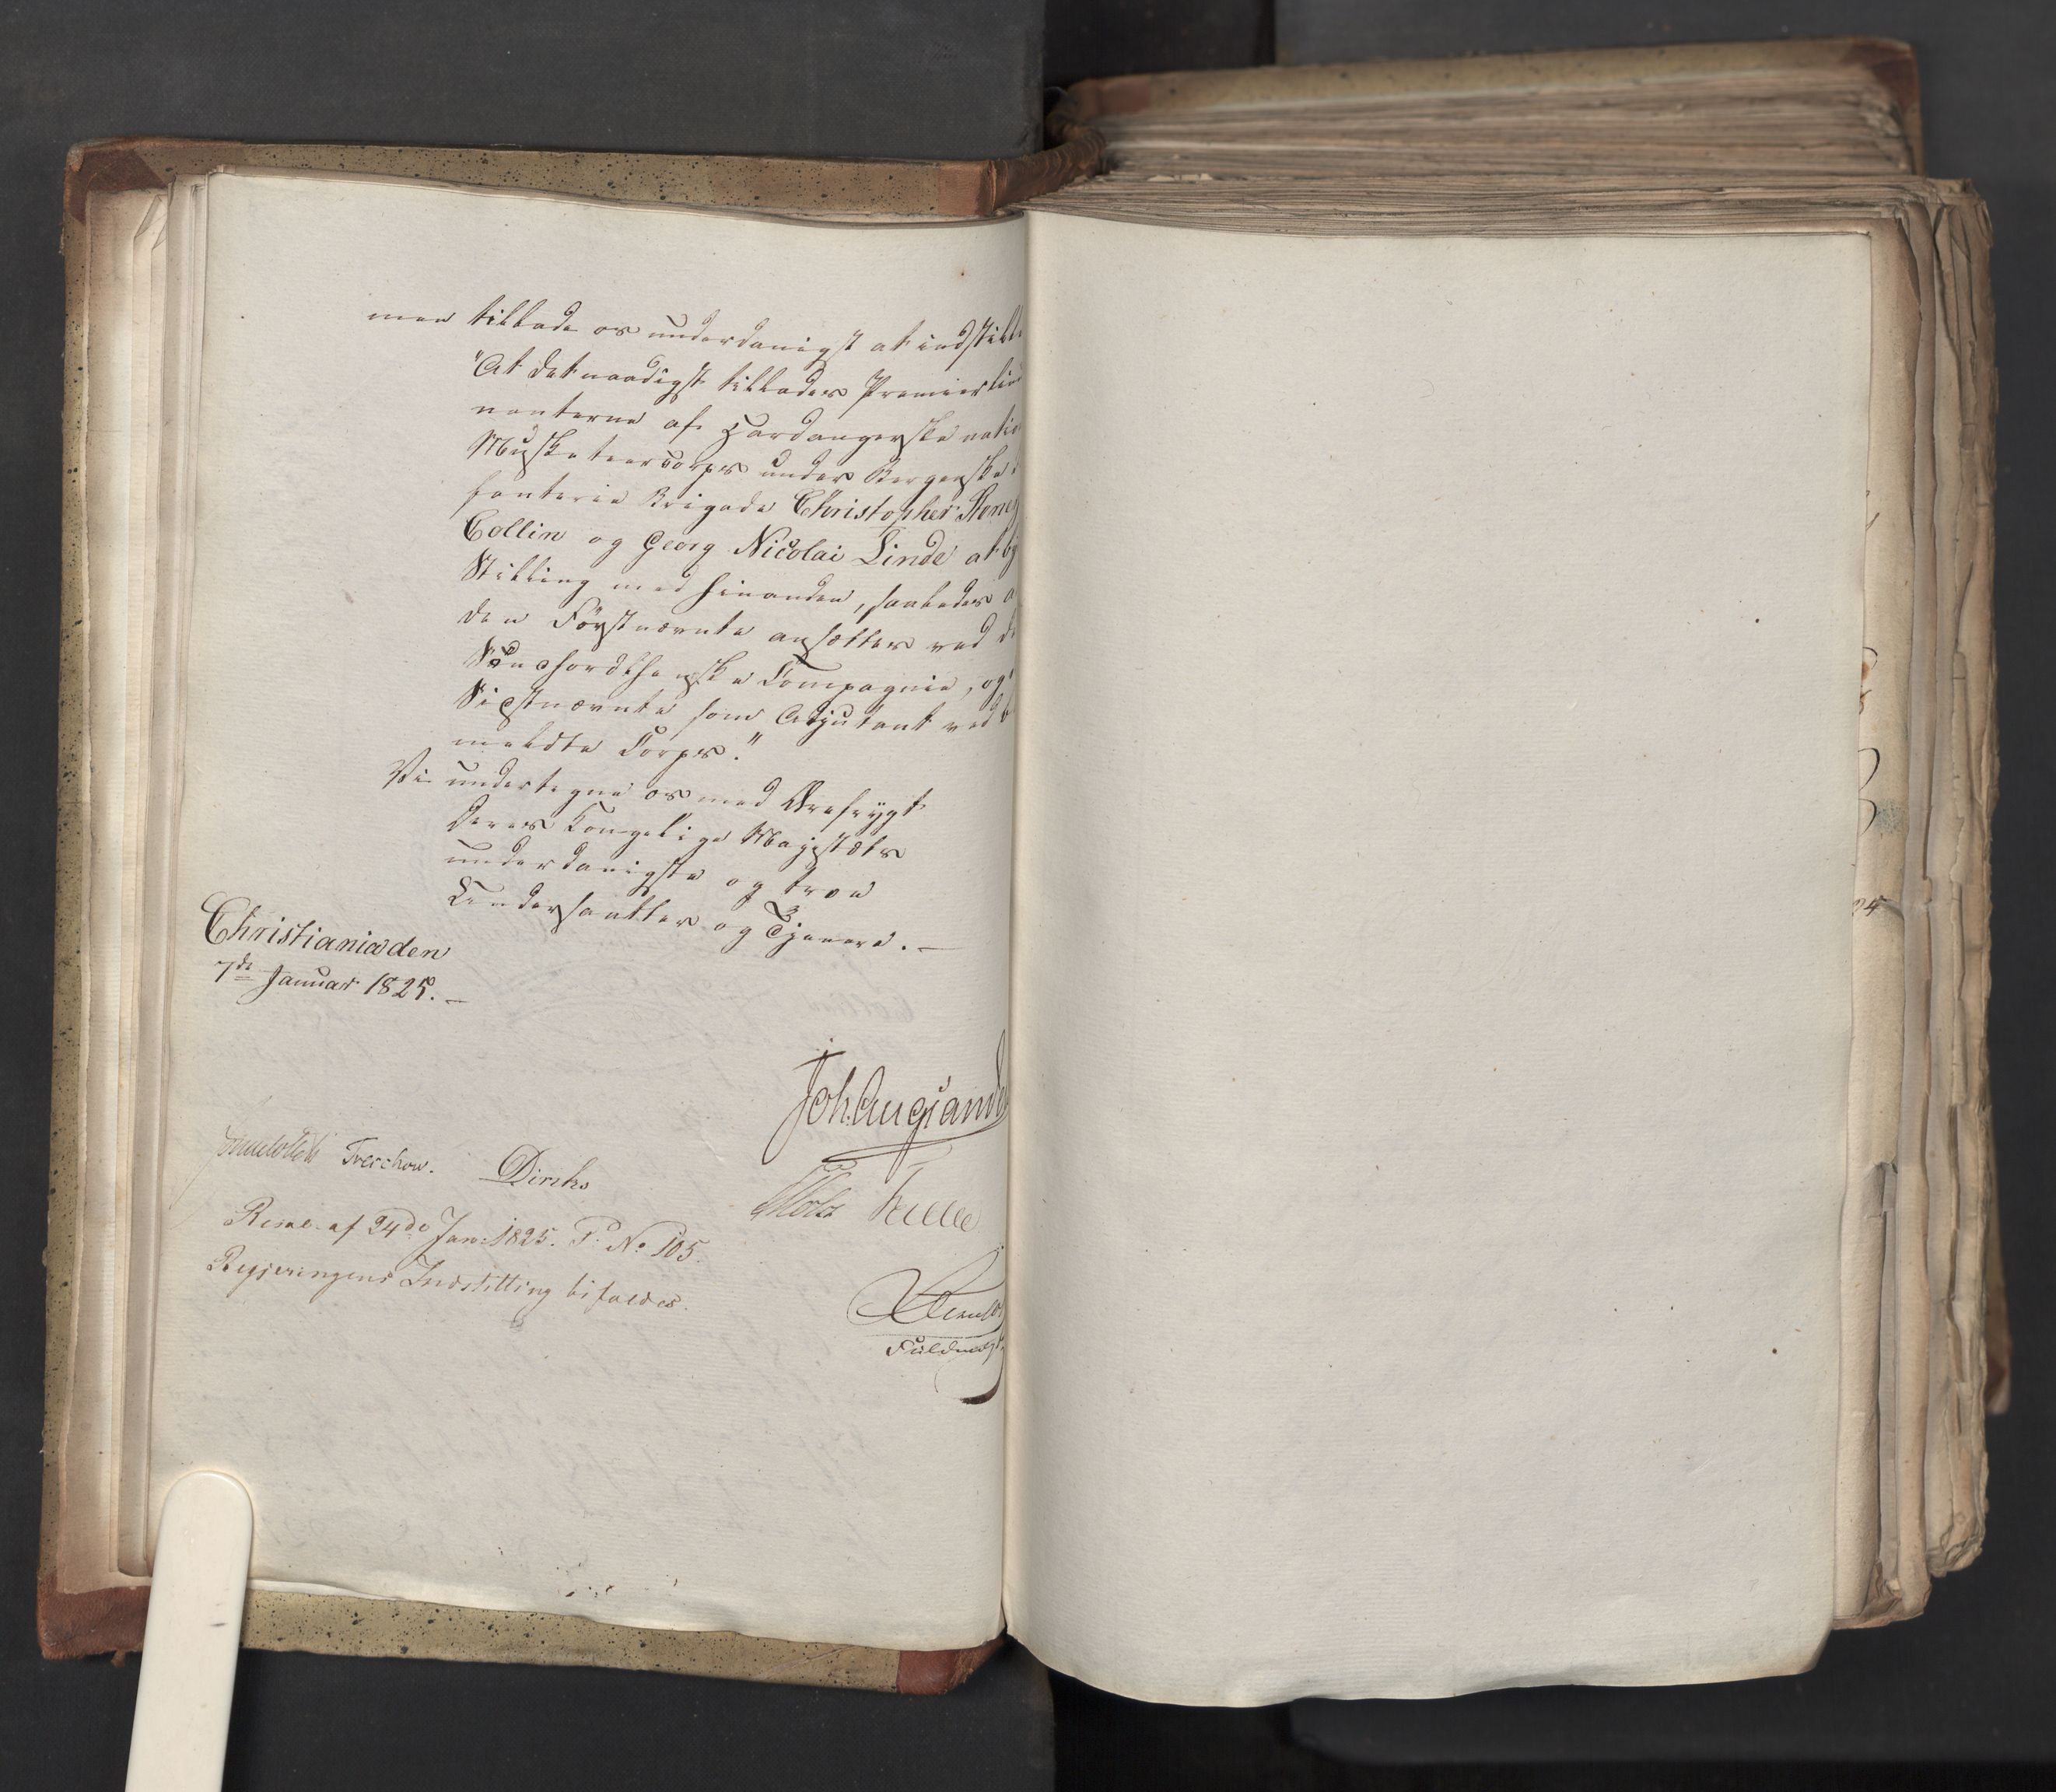 men tillade os underdanigst at indstille
"At det naadigst tillades Premierlieu
nanterne af Hardangerske natio
Musketeercorps under Bergenske
fanterie Brigade Christopher
Collin og Georg Nicolai Linde at by
Stilling med hinanden, saaledes a
den Førstnævnte ansættes ved de
Søndhordlehnske Compagnie, og
Sidstnævnte som Adjutant ved be
meldte Corps."
Vi undertegne os med Ærefrygt
Deres Kongelige Majestæts
underdanigste og troe
Undersaatter og Tjenere. —
Christiania den
7de Januar 1825. —
Joh. Aug: Sande
Treschow. Diriks
Motzfeldt
Resol. af 24de Jan: 1825. P. No 105.
Regjeringens Indstilling bifaldes.
Fuldmægt.